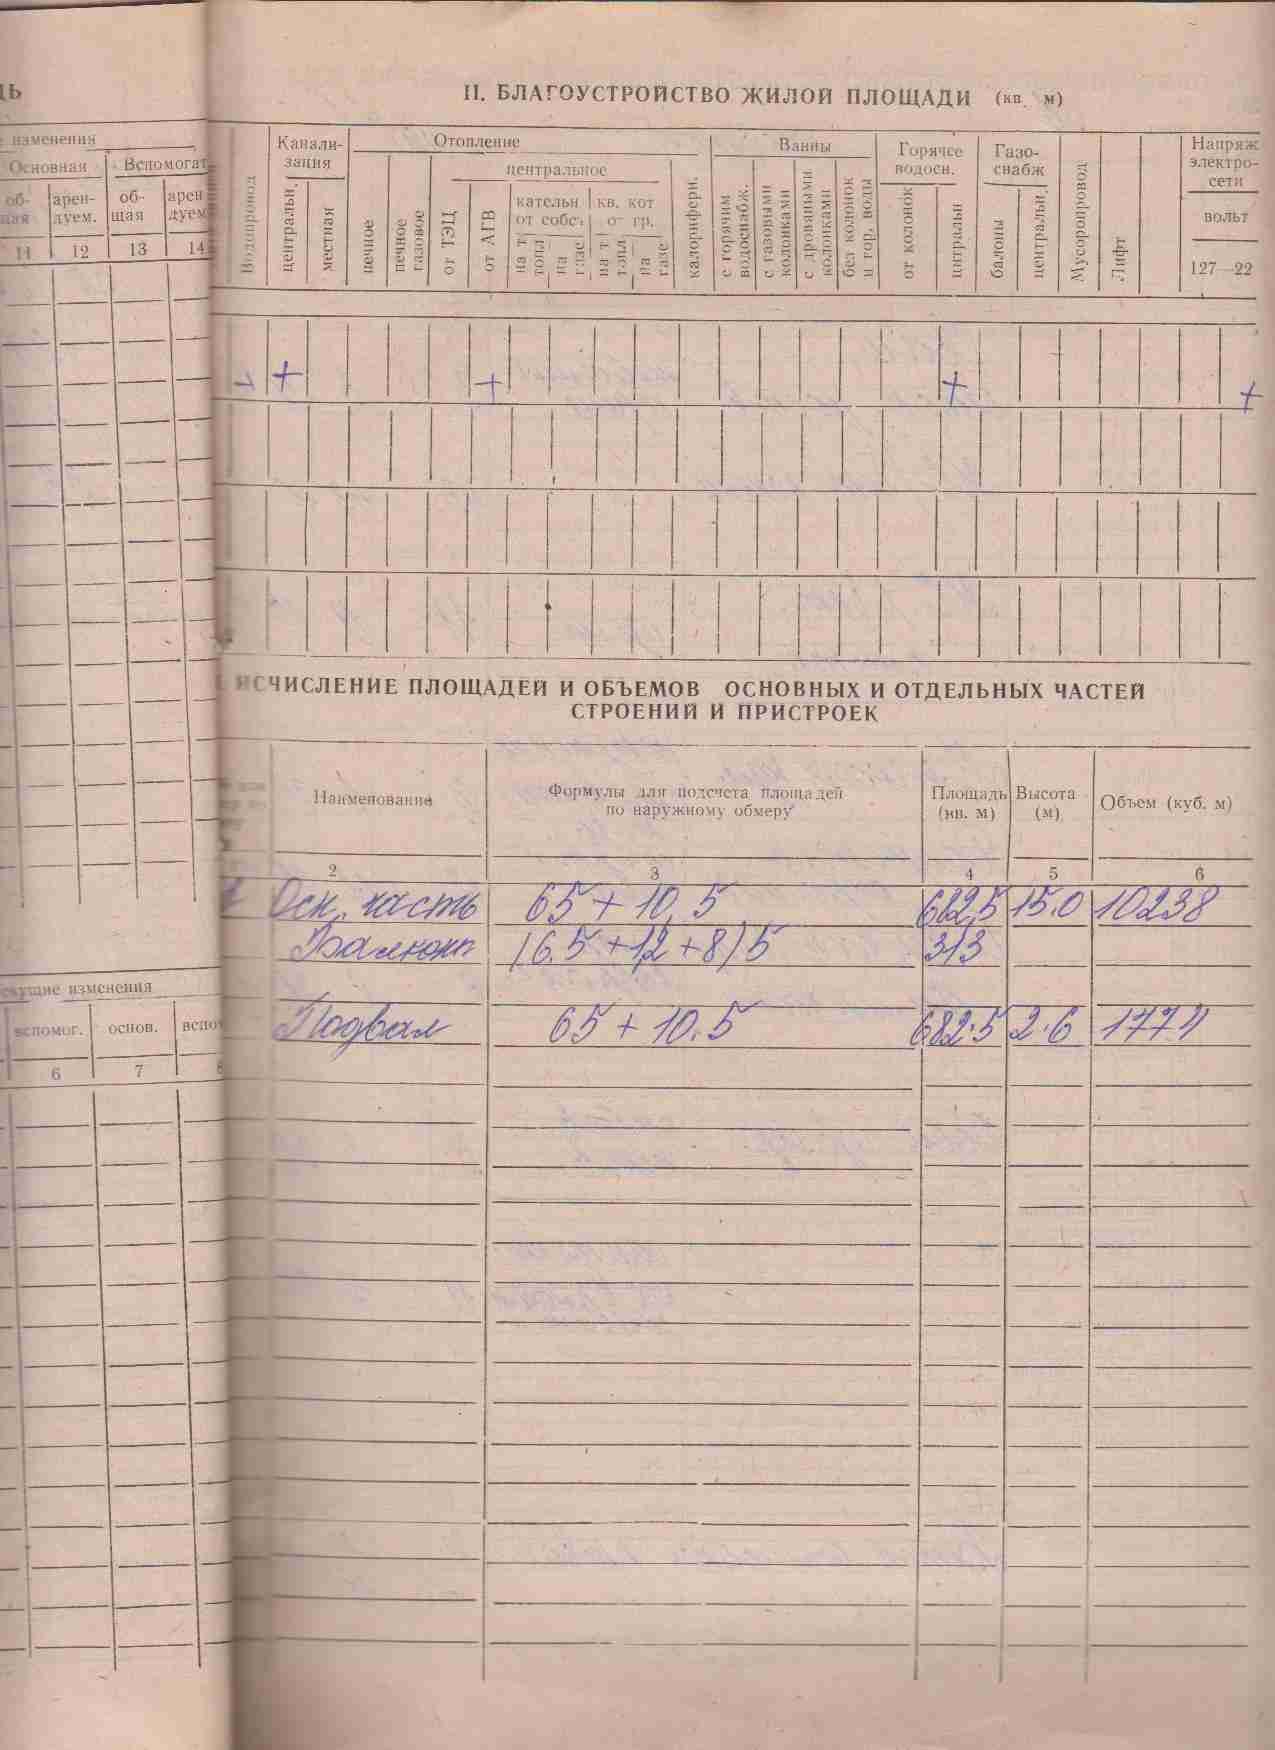 II. БЛАГОУСТРОЙСТВО ЖИЛОЙ ПЛОЩАДИ (кв. м)
Водопровод
Канали-
зация
центральн.
местная
Отопление
печное
печное
газовое
от ТЭЦ
от АГВ
центральное
кательн
от собс
на т
топл
на
газе
кв. кот
о гр.
на т
топл
на
газе
калорифери.
Ванны
с горячим
водоснабж.
с газовыми
колонками
с дровяными
колонками
без колонок
и гор. воды
Горячее
водосн.
от колонок
центральн
Газо-
снабж
балоны
центральн.
Мусоропровод
Лифт
Напряж
электро-
сети
вольт
127—22
+ + + +
ИСЧИСЛЕНИЕ ПЛОЩАДЕЙ И ОБЪЕМОВ ОСНОВНЫХ И ОТДЕЛЬНЫХ ЧАСТЕЙ
СТРОЕНИЙ И ПРИСТРОЕК
Наименование
Формулы для подсчета площадей
по наружному обмеру
Площадь
(кв. м)
Высота
(м)
Объем (куб. м)
2 3 4 5 6
Осн. часть 65 + 10,5 682,5 15.0 10238
65 + 10.5 682.5 2.6 1774
Подвал
изменения
Основная Вспомогат
об-
щая
арен-
дуем.
об-
щая
арен
дуем
11 12 13 14
изменения
вспомог. основ. вспо
6 7